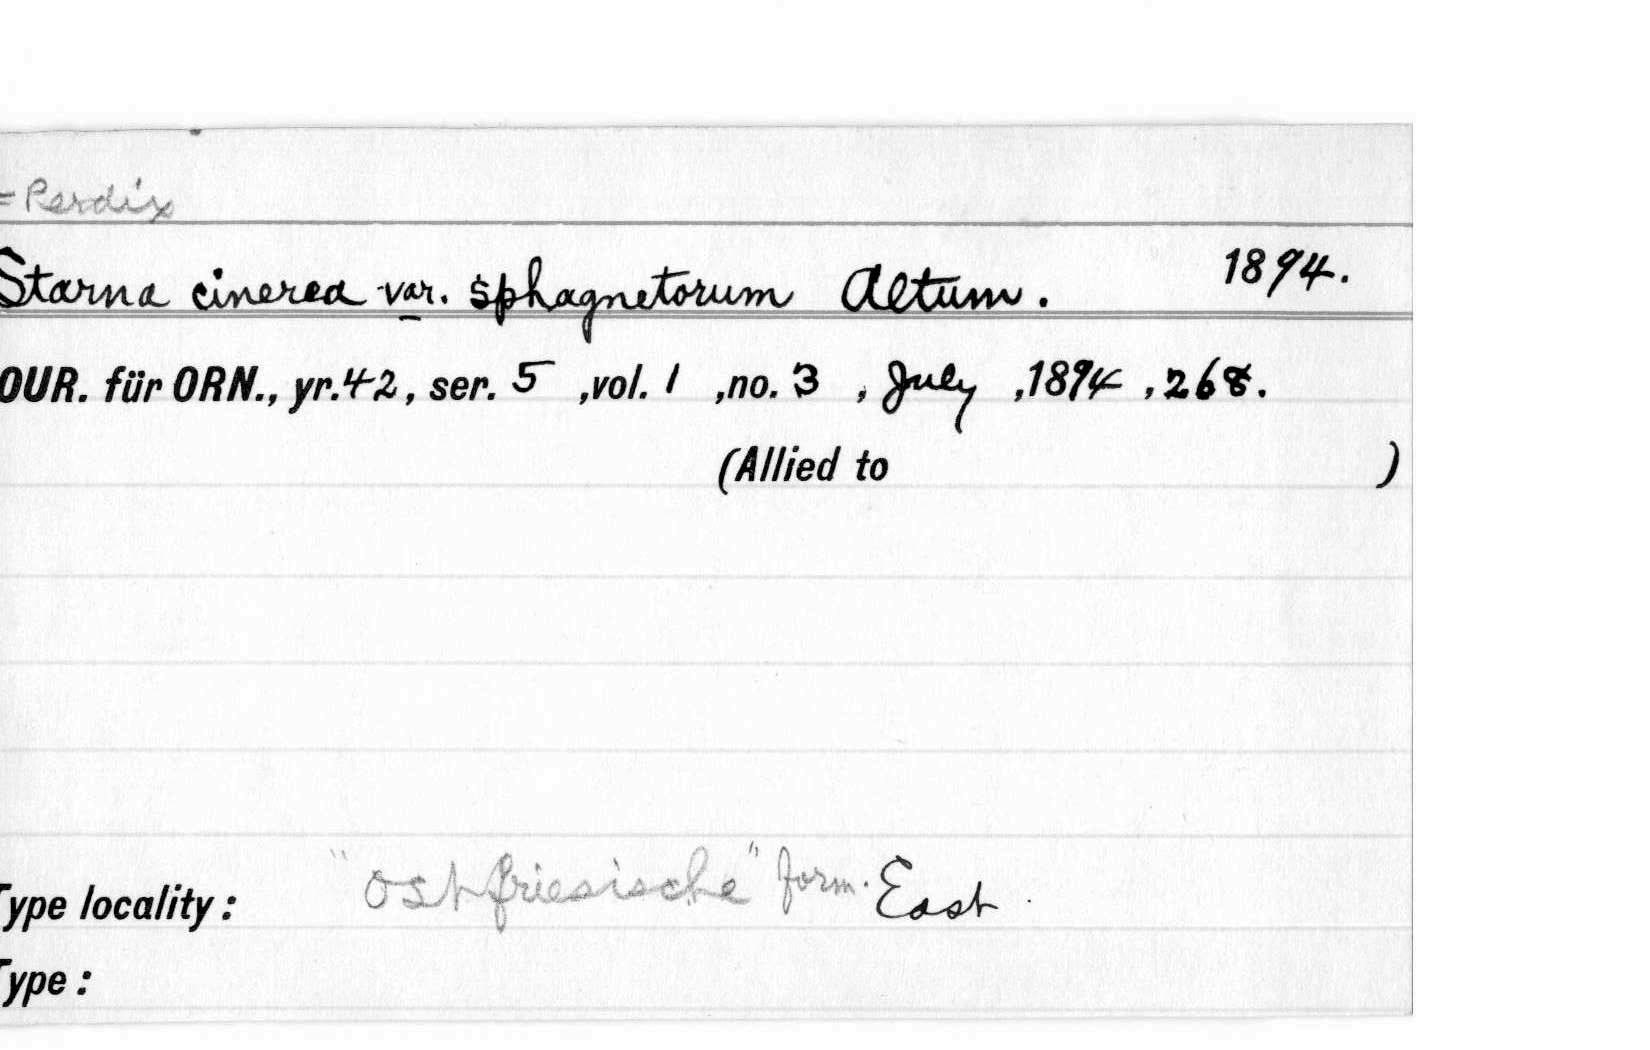 = Perdix
Starna cinerea var. sphagnetorum Altum. 1894.
OUR. für ORN., yr. 42, ser. 5 ,vol. 1 ,no. 3 , July ,1894 ,268.
(Allied to )
Type locality: "ostfriesische" form. East
Type: